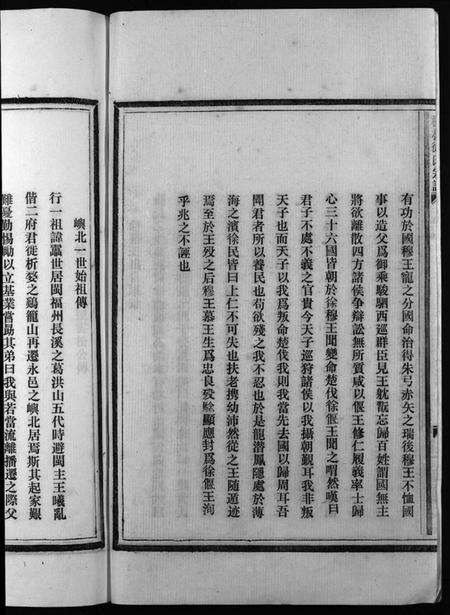 有功於國穆王寵之分國命治得朱弓赤矢之瑞後穆王不恤國
事以造父爲御乘駿駟西巡群臣見王躭翫忘歸百姓謂國無主
將欲離散四方諸侯爭辯訟無所質咸以偃王修仁履義率士歸
心三十六國皆朝於徐穆王聞變命楚伐徐偃王聞之喟然嘆曰
君子不處不義之官貴今天子巡狩諸侯以我攝朝覲耳我非叛
天子也而天子以我爲叛命楚伐我則我當先去國以歸周耳吾
聞君者所以養民也苟欲殘之我不忍也於是龍潛鳳隱處於薄
海之濱徐民皆曰上仁不可失也扶老携幼沛然從之王随遁迹
焉至於王歿之后穆王慕王生爲忠良歿騐顯應封爲徐偃王洵
乎兆之不誣也
嶼北一世始祖傳
行一祖諱靄世居閩福州長溪之葛洪山五代時避閩主王曦亂
偕二府君徙析婺之鷄籠山再遷永邑之嶼北居焉斯其起家艱
難憂勤惕勵以立基業嘗勗其弟曰我與若當流離播遷之際父